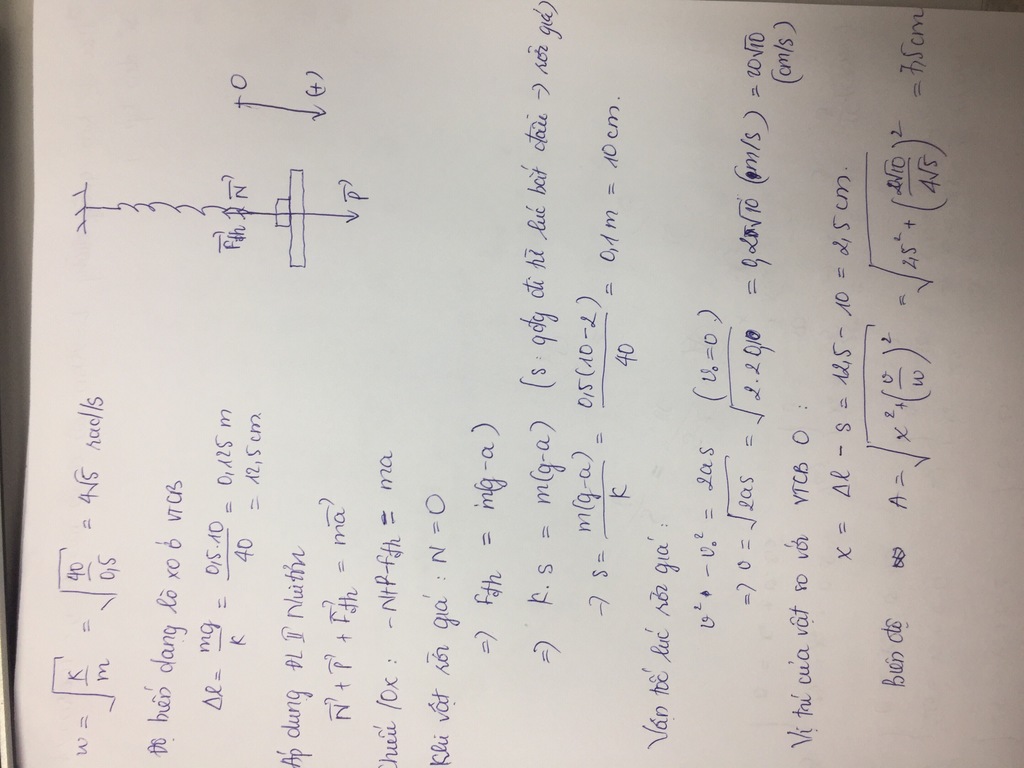 ω = √(k/m) = √(40/0,5) = 4√5 rad/s
Độ biến dạng lò xo ở VTCB
Δl = mg/K = 0,5.10/40 = 0,125 m
= 12,5cm
Áp dụng ĐL II Niutơn
N⃗ + P⃗ + F⃗đh = ma⃗
Chiếu /Ox: -N+P-Fđh = ma
Khi vật rời giá: N = 0
=> Fđh = m(g-a)
=> K.s = m(g-a) (s: qđường đi từ lúc bắt đầu -> rời giá)
-> s = m(g-a)/K = 0,5(10-2)/40 = 0,1m = 10cm.
Vận tốc lúc rời giá:
v² - v₀² = 2as (v₀=0)
=> v = √(2as) = √(2.2.0,1) = 0,2√10 (m/s) = 20√10
(cm/s)
Vị trí của vật so với VTCB O:
x = Δl - s = 12,5 - 10 = 2,5cm.
Biên độ A = √(x²+(v/ω)²) = √(2,5² + (2√10/4√5)²) = 7,5cm
F⃗đh
N⃗
P⃗
O
(+)